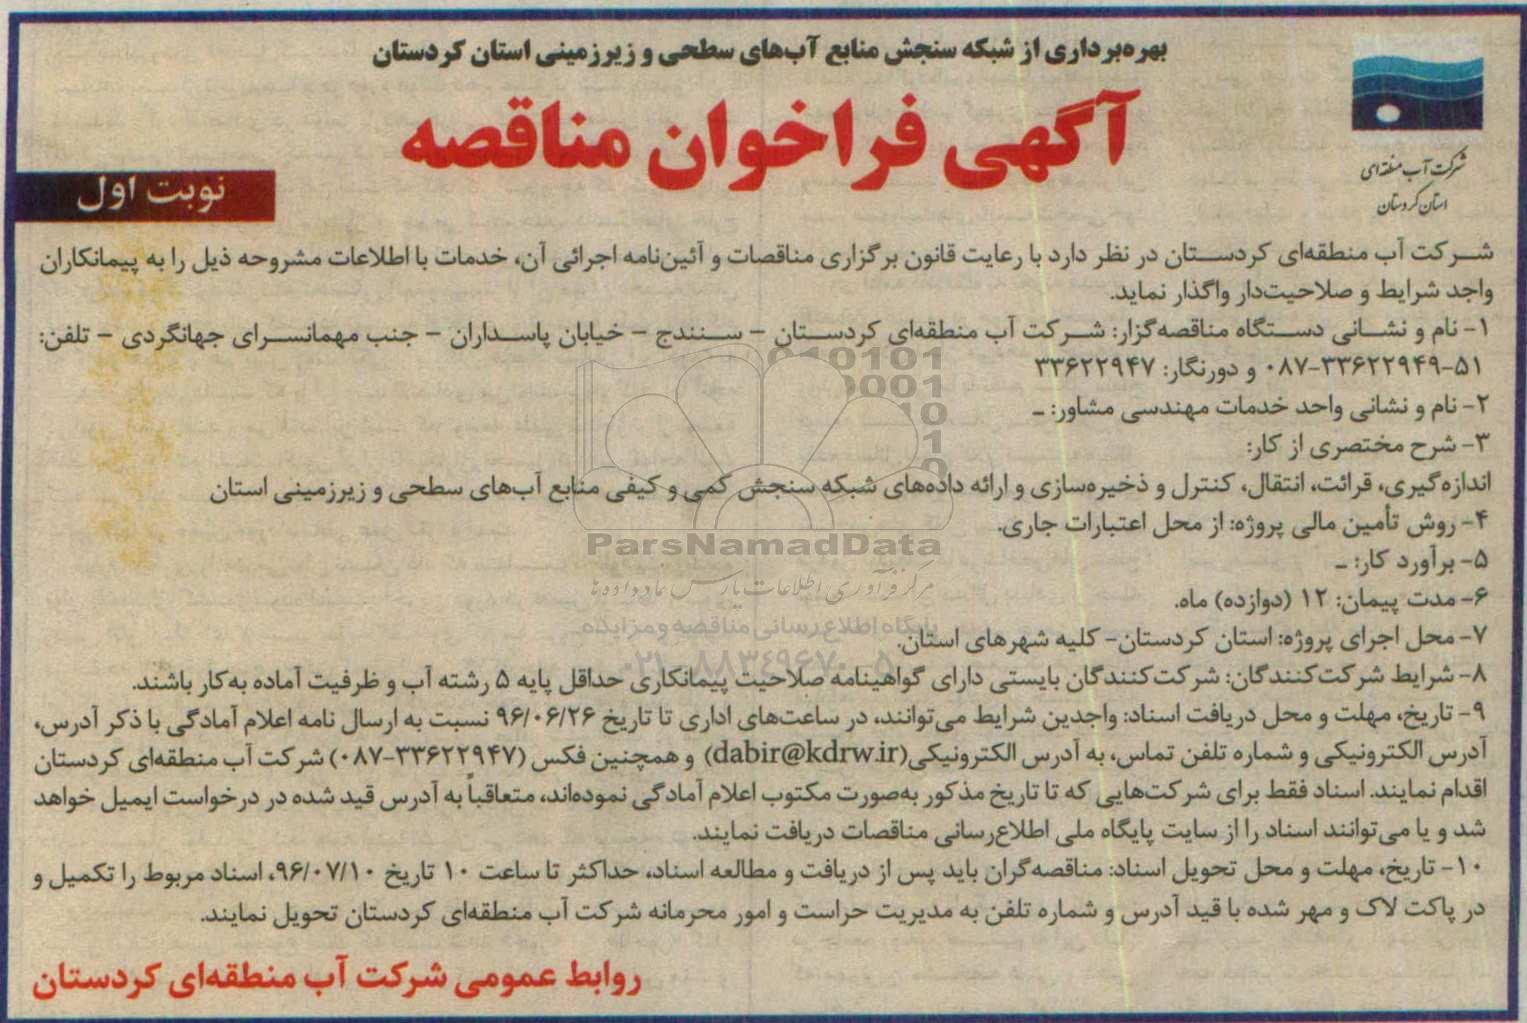 بهره‌برداری از شبکه سنجش منابع آب‌های سطحی و زیرزمینی استان کردستان
آگهی فراخوان مناقصه
شرکت آب منطقه‌ای
استان کردستان
نوبت اول
شرکت آب منطقه‌ای کردستان در نظر دارد با رعایت قانون برگزاری مناقصات و آئین‌نامه اجرائی آن، خدمات با اطلاعات مشروحه ذیل را به پیمانکاران
واجد شرایط و صلاحیت‌دار واگذار نماید.
۱- نام و نشانی دستگاه مناقصه‌گزار: شرکت آب منطقه‌ای کردستان - سنندج - خیابان پاسداران - جنب مهمانسرای جهانگردی - تلفن:
۰۸۷-۳۳۶۲۲۹۴۹-۵۱ و دورنگار: ۳۳۶۲۲۹۴۷
۲- نام و نشانی واحد خدمات مهندسی مشاور: ـ
۳- شرح مختصری از کار:
اندازه‌گیری، قرائت، انتقال، کنترل و ذخیره‌سازی و ارائه داده‌های شبکه سنجش کمی و کیفی منابع آب‌های سطحی و زیرزمینی استان
۴- روش تأمین مالی پروژه: از محل اعتبارات جاری.
۵- برآورد کار: ـ
۶- مدت پیمان: ۱۲ (دوازده) ماه.
۷- محل اجرای پروژه: استان کردستان- کلیه شهرهای استان.
۸- شرایط شرکت‌کنندگان: شرکت‌کنندگان بایستی دارای گواهینامه صلاحیت پیمانکاری حداقل پایه ۵ رشته آب و ظرفیت آماده به‌کار باشند.
۹- تاریخ، مهلت و محل دریافت اسناد: واجدین شرایط می‌توانند، در ساعت‌های اداری تا تاریخ ۹۶/۰۶/۲۶ نسبت به ارسال نامه اعلام آمادگی با ذکر آدرس،
آدرس الکترونیکی و شماره تلفن تماس، به آدرس الکترونیکی(dabir@kdrw.ir) و همچنین فکس (۰۸۷-۳۳۶۲۲۹۴۷) شرکت آب منطقه‌ای کردستان
اقدام نمایند. اسناد فقط برای شرکت‌هایی که تا تاریخ مذکور به‌صورت مکتوب اعلام آمادگی نموده‌اند، متعاقباً به آدرس قید شده در درخواست ایمیل خواهد
شد و یا می‌توانند اسناد را از سایت پایگاه ملی اطلاع‌رسانی مناقصات دریافت نمایند.
۱۰- تاریخ، مهلت و محل تحویل اسناد: مناقصه‌گران باید پس از دریافت و مطالعه اسناد، حداکثر تا ساعت ۱۰ تاریخ ۹۶/۰۷/۱۰، اسناد مربوط را تکمیل و
در پاکت لاک و مهر شده با قید آدرس و شماره تلفن به مدیریت حراست و امور محرمانه شرکت آب منطقه‌ای کردستان تحویل نمایند.
روابط عمومی شرکت آب منطقه‌ای کردستان
ParsNamadData
مرکز فرآوری اطلاعات پارس نماد داده‌ها
پایگاه اطلاع رسانی مناقصه و مزایده
۰۲۱-۸۸۳۴۹۶۷۰-۵